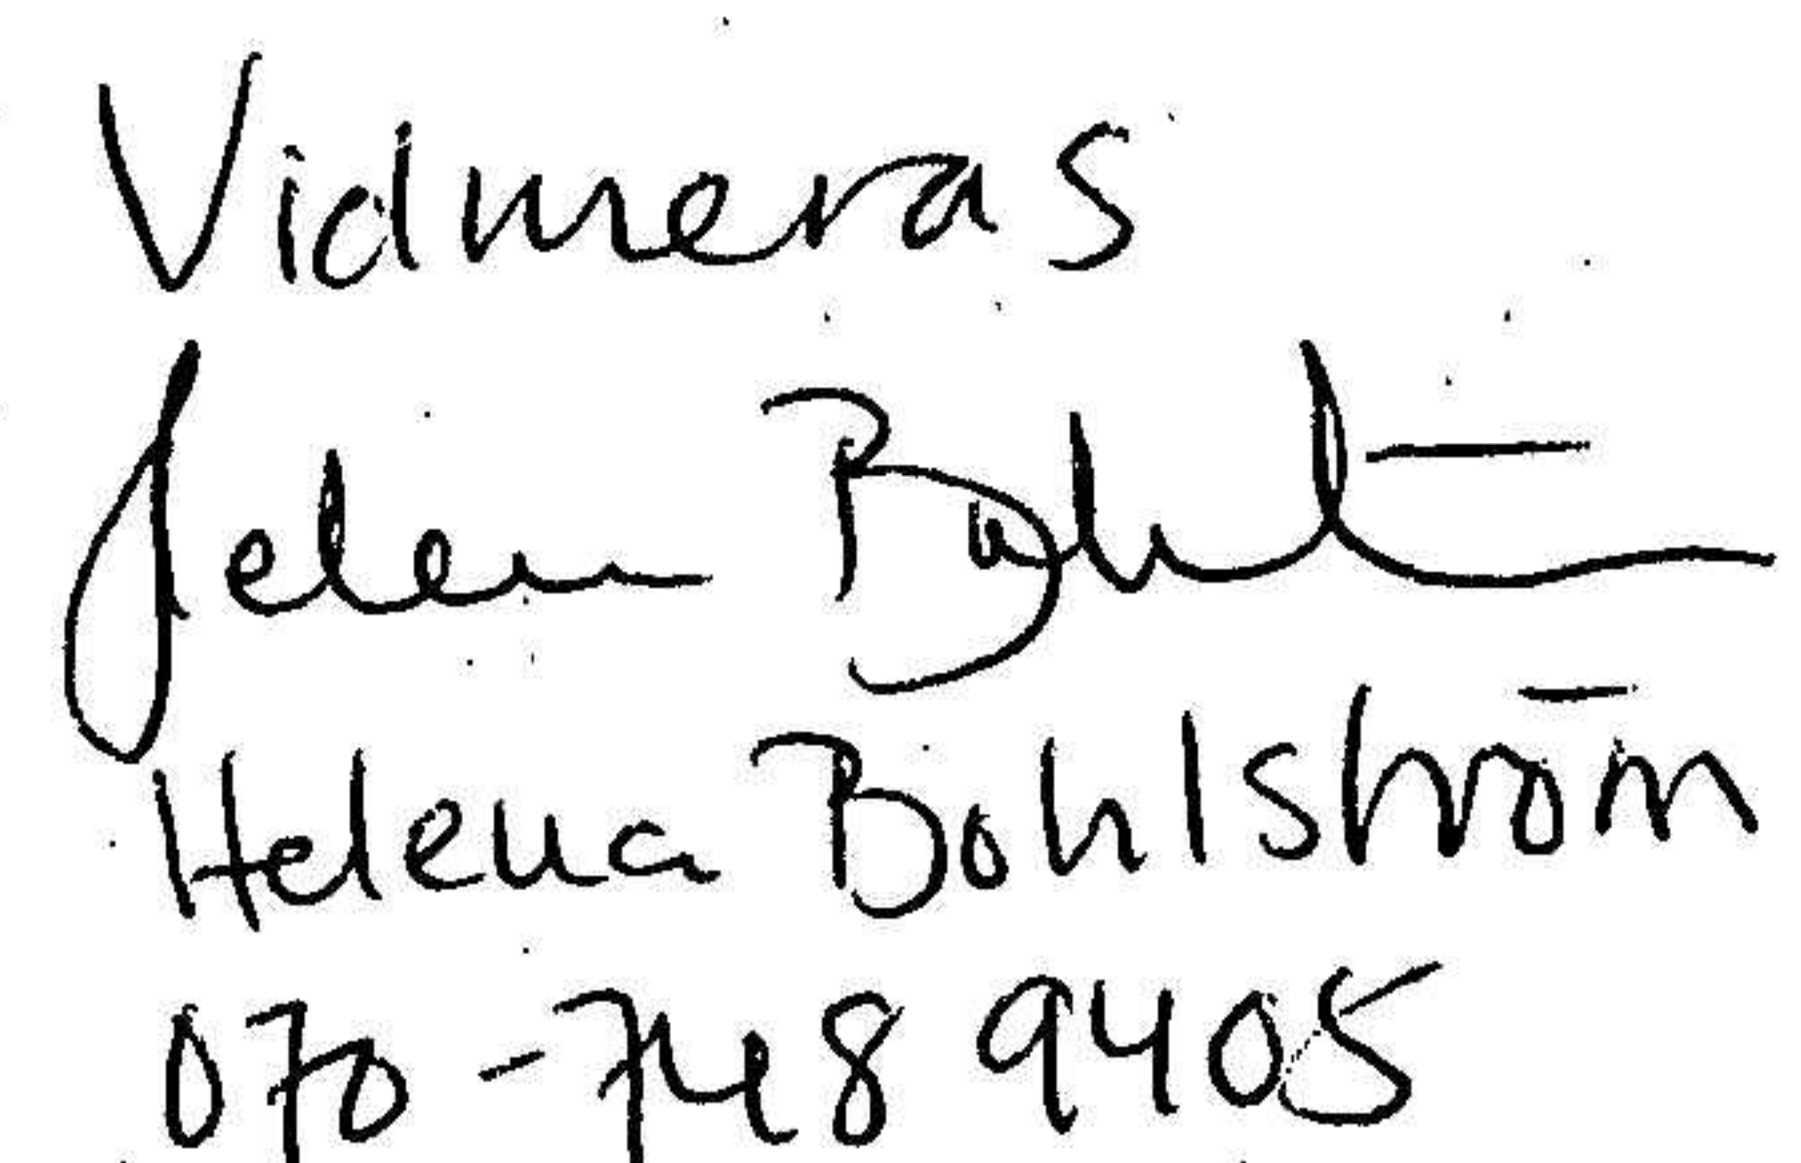 Vidmeras
Helena Bohlström
Helena Bohlström
070-748 9405